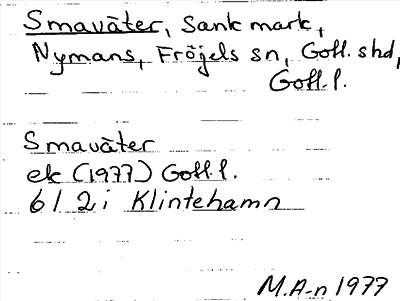 Smaväter, Sank mark,
Nymans, Fröjels sn, Gotl. shd,
Gotl. l.
Smaväter
ek (1977) Gotl. l.
6 I 2 i Klintehamn
M.A-n 1977